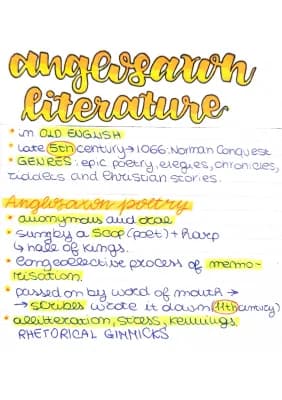 anglosaxon
literature
• in OLD ENGLISH
• late 5th century → 1066: Norman Conquest
• GENRES: epic poetry, elegies, chronicles,
riddles and Christian stories.
Anglosaxon poetry
• anonymous and oral
• sung by a SCOP (poet) + harp
↳ hale of kings.
• long collective process of memo-
risation.
• passed on by word of mouth →
→ scribes wrote it down (11th century)
• alliteration, stress, kennings.
RHETORICAL GIMMICKS